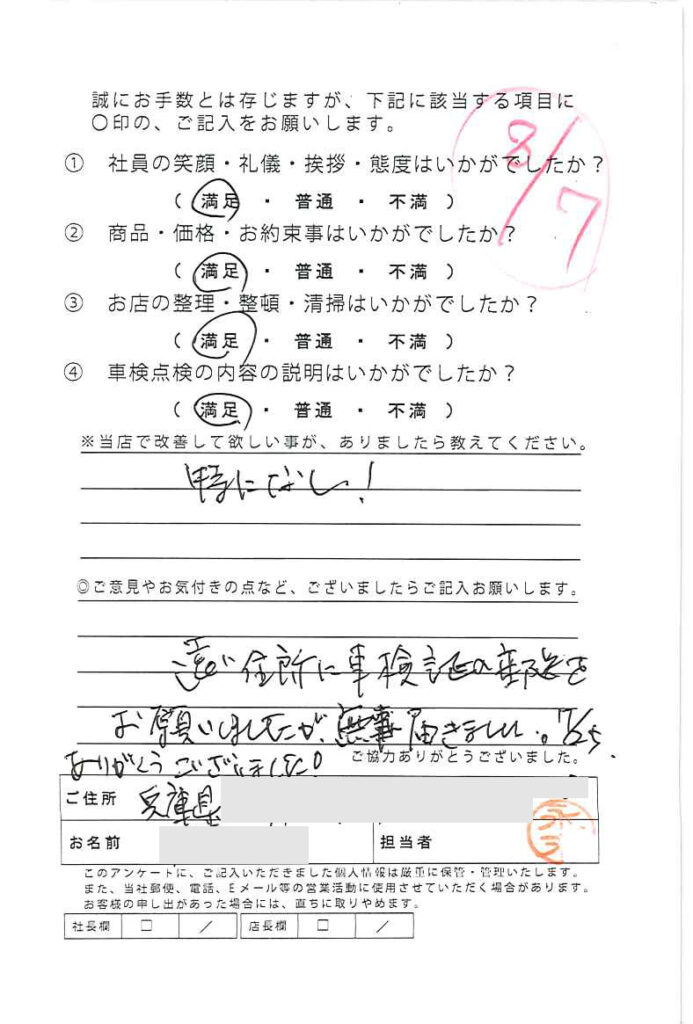 誠にお手数とは存じますが、下記に該当する項目に
〇印の、ご記入をお願いします。
8/7
① 社員の笑顔・礼儀・挨拶・態度はいかがでしたか？
( 満足 ・ 普通 ・ 不満 )
② 商品・価格・お約束事はいかがでしたか？
( 満足 ・ 普通 ・ 不満 )
③ お店の整理・整頓・清掃はいかがでしたか？
( 満足 ・ 普通 ・ 不満 )
④ 車検点検の内容の説明はいかがでしたか？
( 満足 ・ 普通 ・ 不満 )
※当店で改善して欲しい事が、ありましたら教えてください。
特になし！
◎ご意見やお気付きの点など、ございましたらご記入お願いします。
住所に車検証の郵送を
お願いしましたが、無事届きました。7/25
ありがとうございました！
ご協力ありがとうございました。
ご住所 兵庫県
お名前 担当者
このアンケートに、ご記入いただきました個人情報は厳重に保管・管理いたします。
また、当社郵便、電話、Eメール等の営業活動に使用させていただく場合があります。
お客様の申し出があった場合には、直ちに取りやめます。
社長欄 □ ／ 店長欄 □ ／